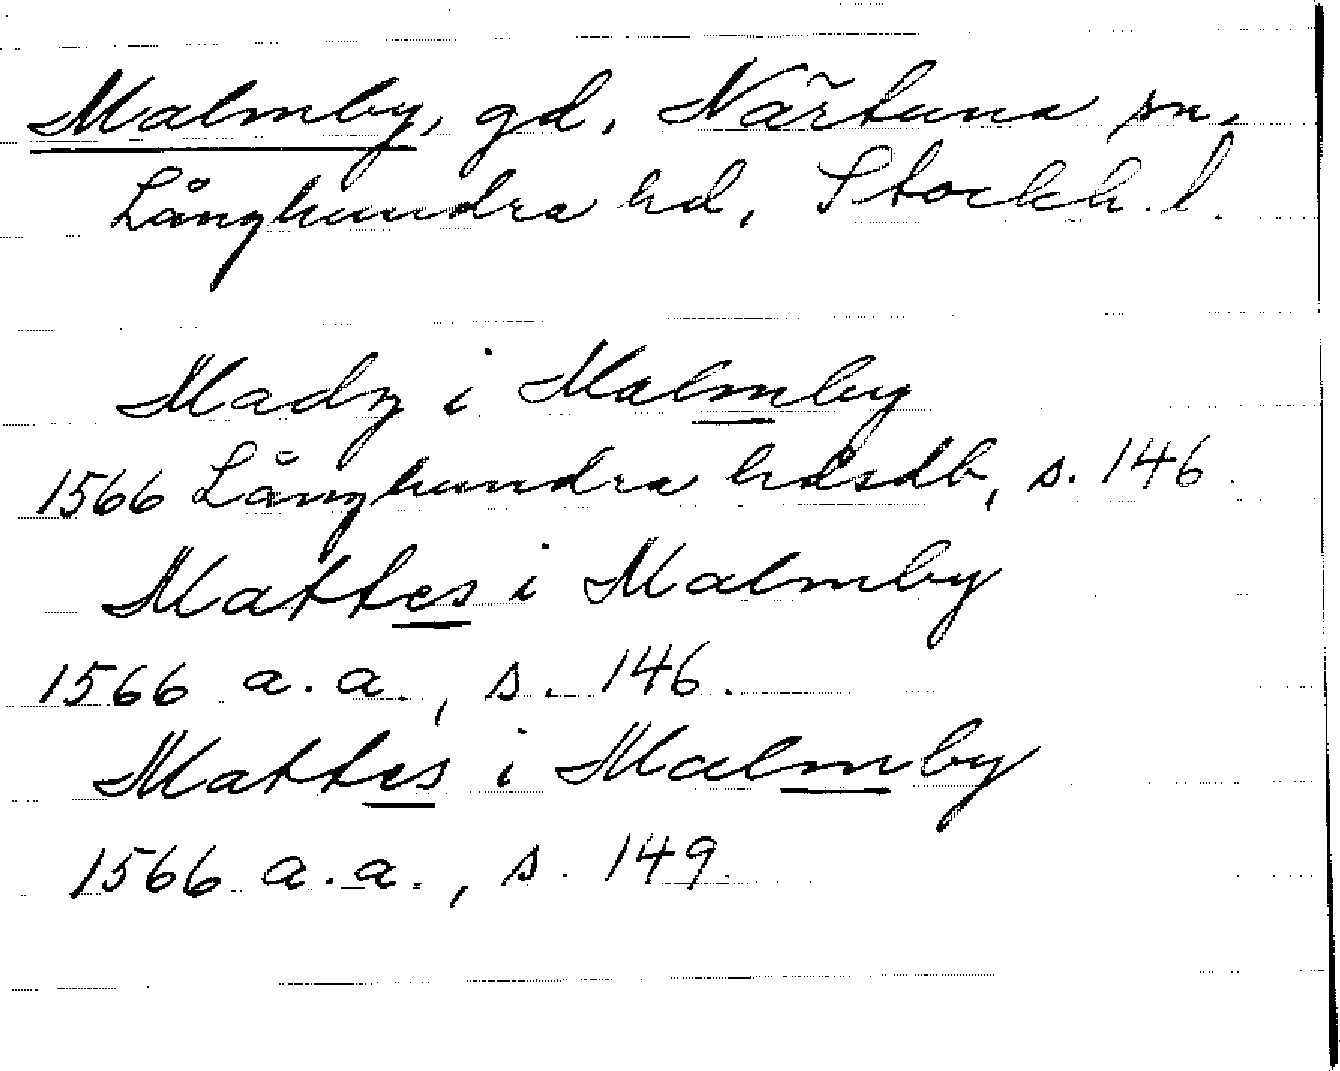 Malmby, gd, Närtuna sn,
Långhundra hd, Stockh. l.
Madz i Malmby
1566 Långhundra hdsdb, s. 146.
Mattes i Malmby
1566 a.a., s. 146.
Mattes i Malmby
1566 a.a., s. 149.